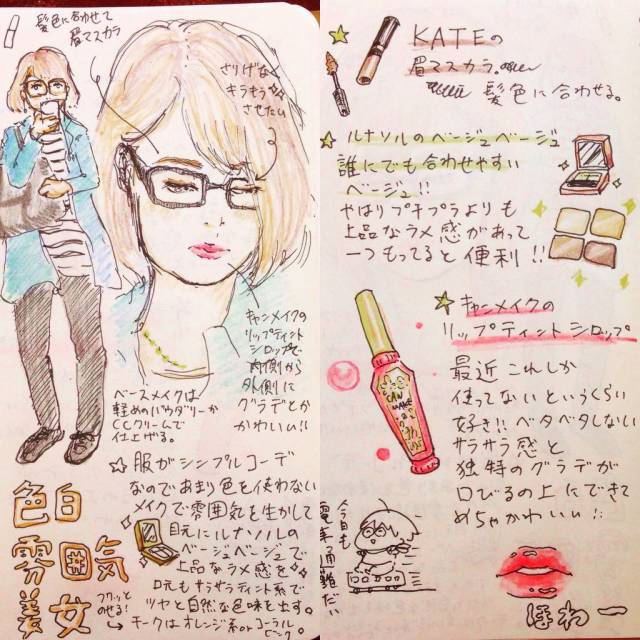 髪色に合わせて
眉マスカラ
さりげなく
キラキラ
させたい
キャンメイクの
リップティント
シロップを
内側から
外側に
グラデとか
かわいい!!
ベースメイクは
軽めのパウダリーか
CCクリームで
仕上げる。
☆服がシンプルコーデ
なのであまり色を使わない
メイクで雰囲気を生かして
目元にルナソルの
ベージュベージュで
上品なラメ感を
口元もサラサラティント系で
ツヤと自然な色味を出す。
チークはオレンジ系orコーラル
ピンク。
フワッと
のせる!
色白
雰囲気
美女
KATEの
眉マスカラ。
髪色に合わせる。
☆ルナソルのベージュベージュ
誰にでも合わせやすい
ベージュ!!
やはりプチプラよりも
上品なラメ感があって
一つもってると便利!!
☆キャンメイクの
リップティントシロップ
CAN
MAKE
最近これしか
使ってないというくらい
好き!!ベタベタしない
サラサラ感と
独特のグラデが
口びるの上にできて
めちゃかわいい!!
今日も
電車通勤だい
ほわー